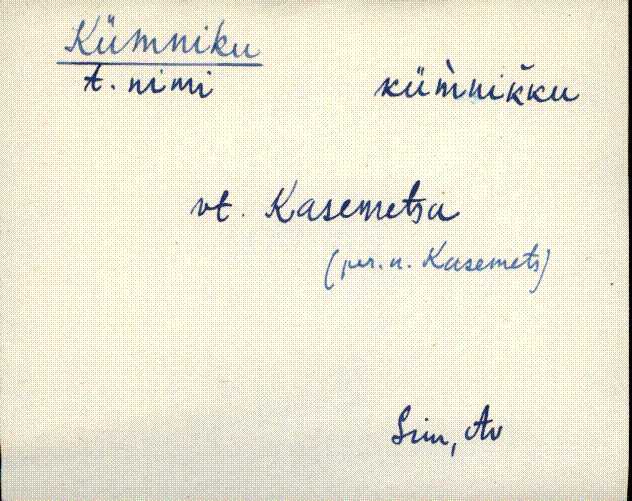 Kümniku
t. nimi kum̀nik̆ku
vt. Kasemetsa
(per. n. Kasemets)
Sim, Av